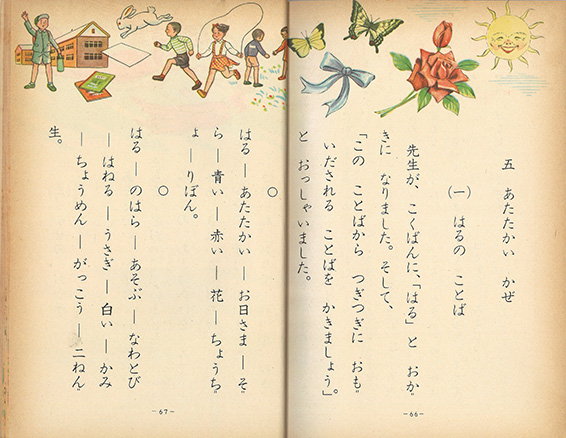 五　あたたかい　かぜ
(一)　はるの　ことば
先生が、こくばんに、「はる」と　おか〃
きに　なりました。そして、
「この　ことばから　つぎつぎに　おも〃
いだされる　ことばを　かきましょう」。
と　おっしゃいました。
－66－
○
はる－あたたかい－お日さま－そ〃
ら－青い－赤い－花－ちょうち〃
ょ－りぼん。
○
はる－のはら－あそぶ－なわとび
－はねる－うさぎ－白い－かみ
－ちょうめん－がっこう－二ねん〃
生。
－67－